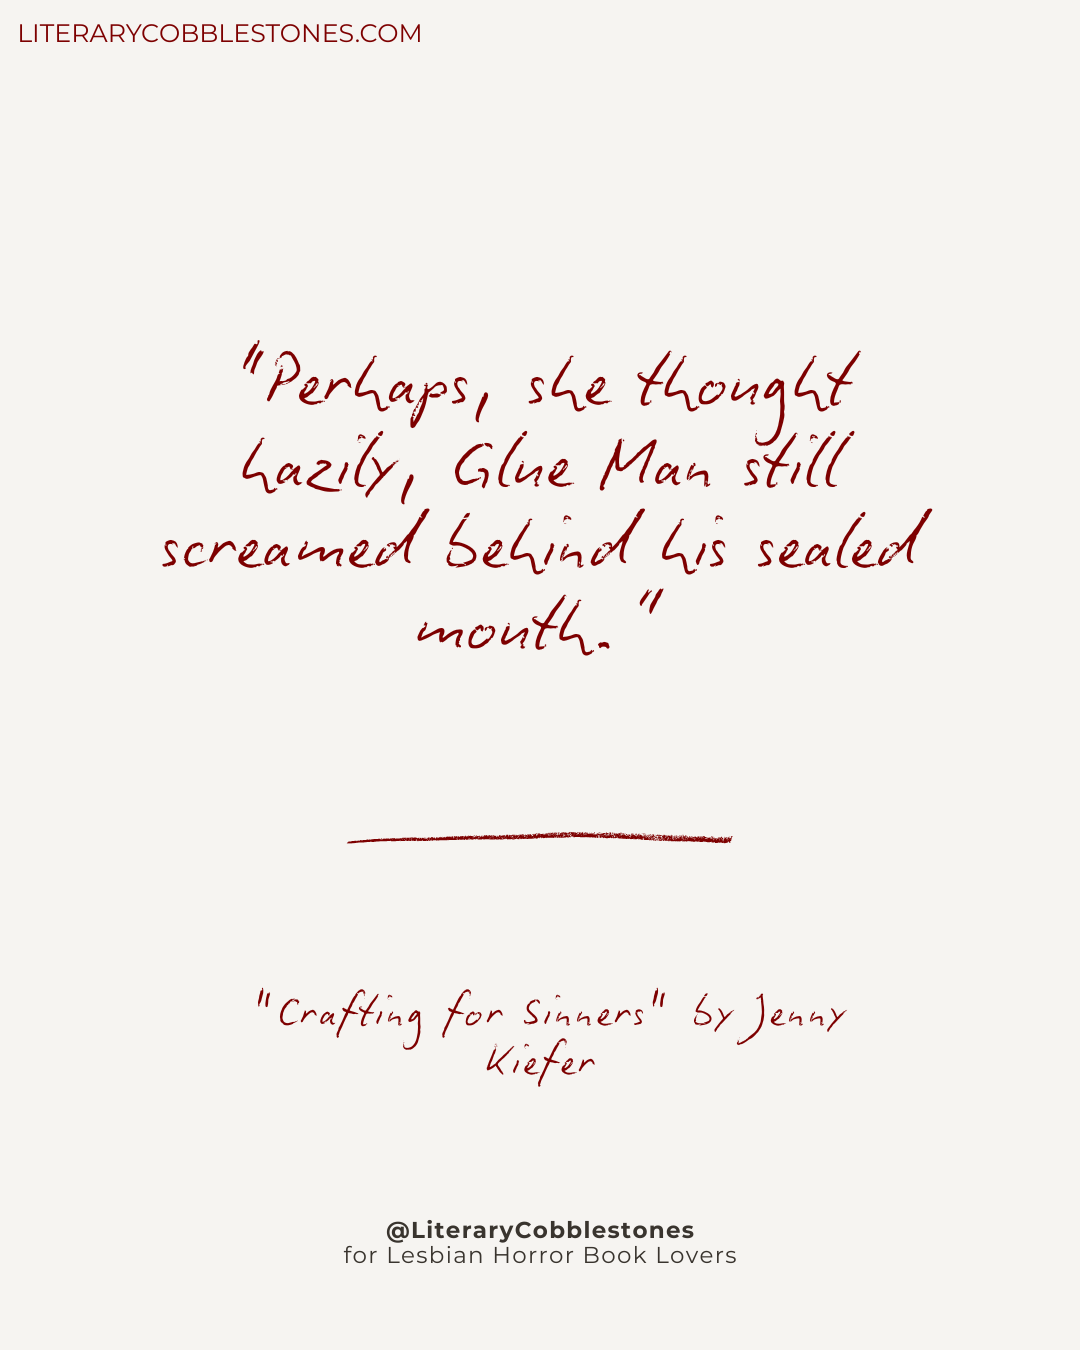 LITERARYCOBBLESTONES.COM
"Perhaps, she thought
hazily, Glue Man still
screamed behind his sealed
mouth."
"Crafting for Sinners" by Jenny
Kiefer
@LiteraryCobblestones
for Lesbian Horror Book Lovers